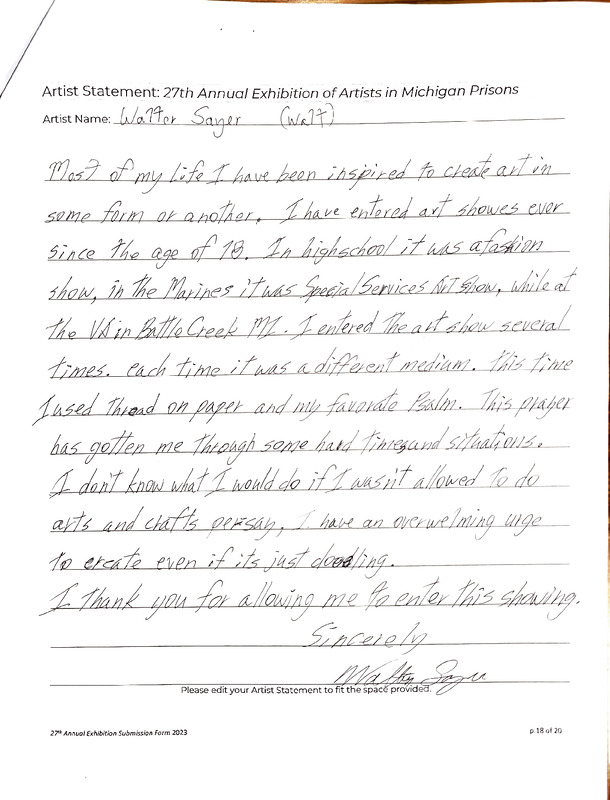 Artist Statement: 27th Annual Exhibition of Artists in Michigan Prisons
Artist Name: Walter Sayer (Walt)
Most of my life I have been inspired to create art in
some form or another. I have entered art showes ever
since the age of 18. In highschool it was a fashion
show, in the Marines it was Special Services Art Show, while at
the VA in Battle Creek MI. I entered the art show several
times. each time it was a different medium. this time
I used thread on paper and my favorate Psalm. This prayer
has gotten me through some hard times and situations.
I don't know what I would do if I wasn't allowed to do
arts and crafts persay, I have an overwelming urge
to create even if its just doodling.
I thank you for allowing me to enter this showing.
Sincerely
Walter Sayer
Please edit your Artist Statement to fit the space provided.
27th Annual Exhibition Submission Form 2023 p.18 of 20